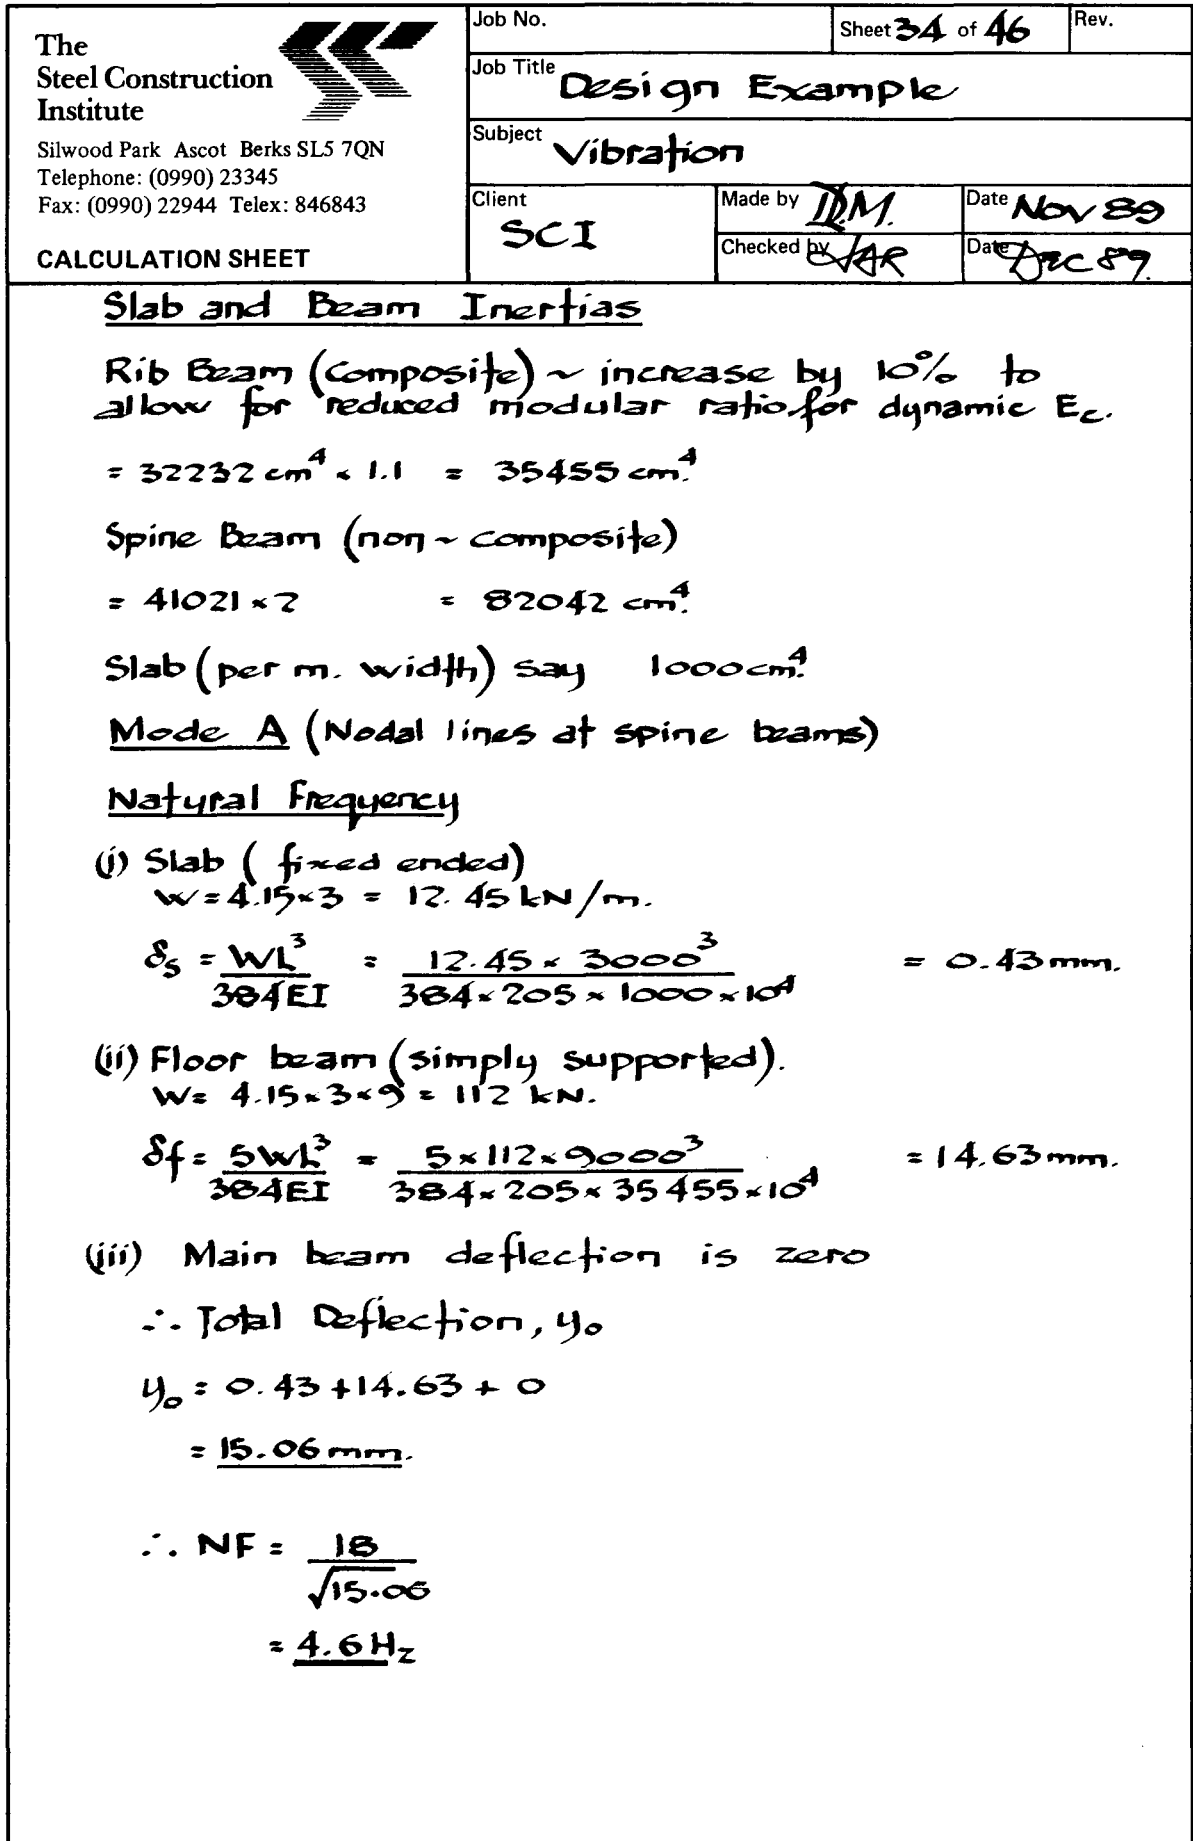 The
Steel Construction
Institute
Silwood Park Ascot Berks SL5 7QN
Telephone: (0990) 23345
Fax: (0990) 22944 Telex: 846843
CALCULATION SHEET
Job No.
Sheet 34 of 46
Rev.
Job Title Design Example
Subject Vibration
Client SCI
Made by D.M.
Date Nov 89
Checked by JAR
Date Dec 89.
Slab and Beam Inertias
Rib Beam (composite) ~ increase by 10% to
allow for reduced modular ratio for dynamic Ec.
= 32232 cm⁴ × 1.1 = 35455 cm⁴.
Spine Beam (non ~ composite)
= 41021 × 2 = 82042 cm⁴.
Slab (per m. width) say 1000 cm⁴.
Mode A (Nodal lines at spine beams)
Natural Frequency
(i) Slab ( fixed ended)
W = 4.15 × 3 = 12.45 kN/m.
δs = WL³/384EI = 12.45 × 3000³/384 × 205 × 1000 × 10⁴ = 0.43 mm.
(ii) Floor beam (simply supported).
W = 4.15 × 3 × 9 = 112 kN.
δf = 5WL³/384EI = 5 × 112 × 9000³/384 × 205 × 35455 × 10⁴ = 14.63 mm.
(iii) Main beam deflection is zero
∴ Total Deflection, y₀
y₀ = 0.43 + 14.63 + 0
= 15.06 mm.
∴ NF = 18/√15.06
= 4.6 Hz